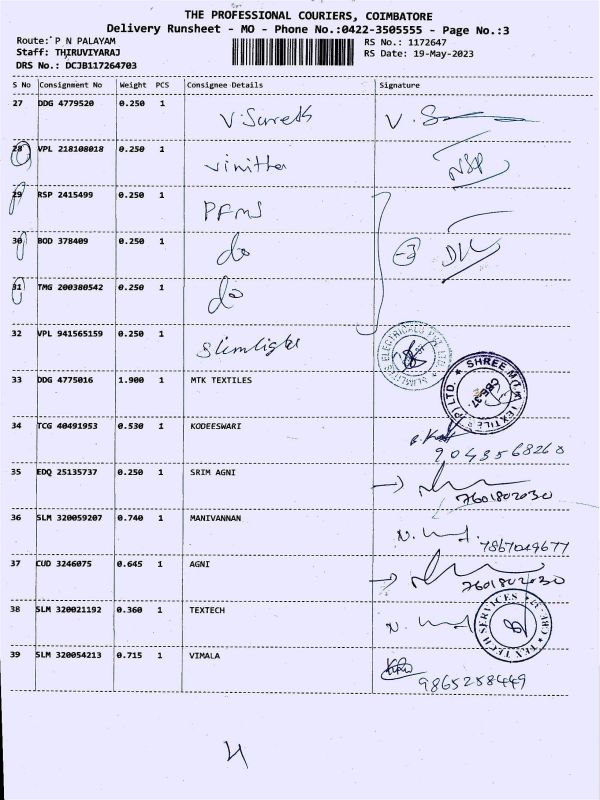 THE PROFESSIONAL COURIERS, COIMBATORE
Delivery Runsheet - MO - Phone No.:0422-3505555 - Page No.:3
Route: P N PALAYAM
RS No.: 1172647
Staff: THIRUVIYARAJ
RS Date: 19-May-2023
DRS No.: DCJB117264703
S No Consignment No Weight PCS Consignee Details Signature
27 DDG 4779520 0.250 1 V. Suresh V. S
28 VPL 218108018 0.250 1 Vinitha NSP
29 RSP 2415499 0.250 1 PFMS
30 BOD 378409 0.250 1 do -3
31 TMG 200380542 0.250 1 do
32 VPL 941565159 0.250 1 Slimlight
SLIMLITE ELECTRICALS PVT. LTD.
33 DDG 4775016 1.900 1 MTK TEXTILES
SHREE M.T.K TEXTILES (P) LTD. CBE-37.
34 TCG 40491953 0.530 1 KODEESWARI
9043568260
35 EDQ 25135737 0.250 1 SRIM AGNI
7601802030
36 SLM 320059207 0.740 1 MANIVANNAN
7867049677
37 CUD 3246075 0.645 1 AGNI
7601802030
38 SLM 320021192 0.360 1 TEXTECH
TEX TECH SERVICES
39 SLM 320054213 0.715 1 VIMALA
9865258449